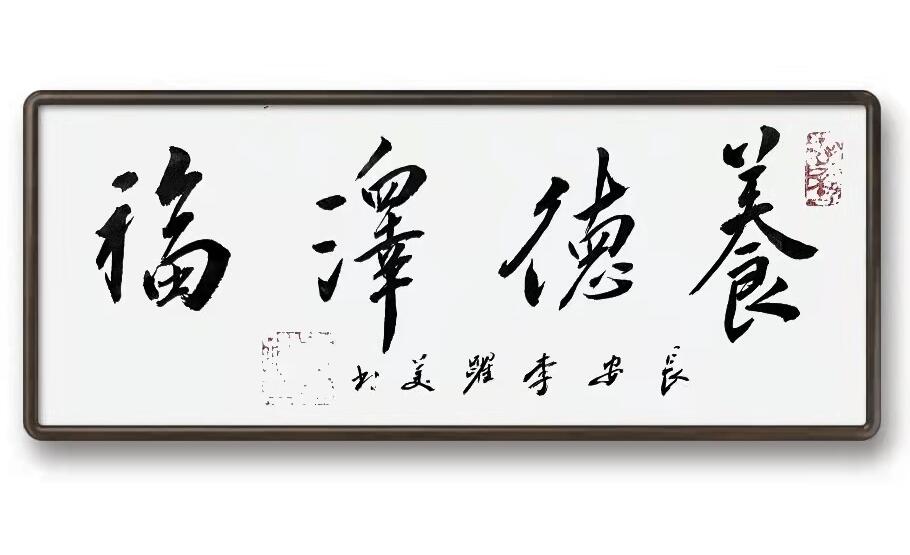 養德澤福
長安李躍美书